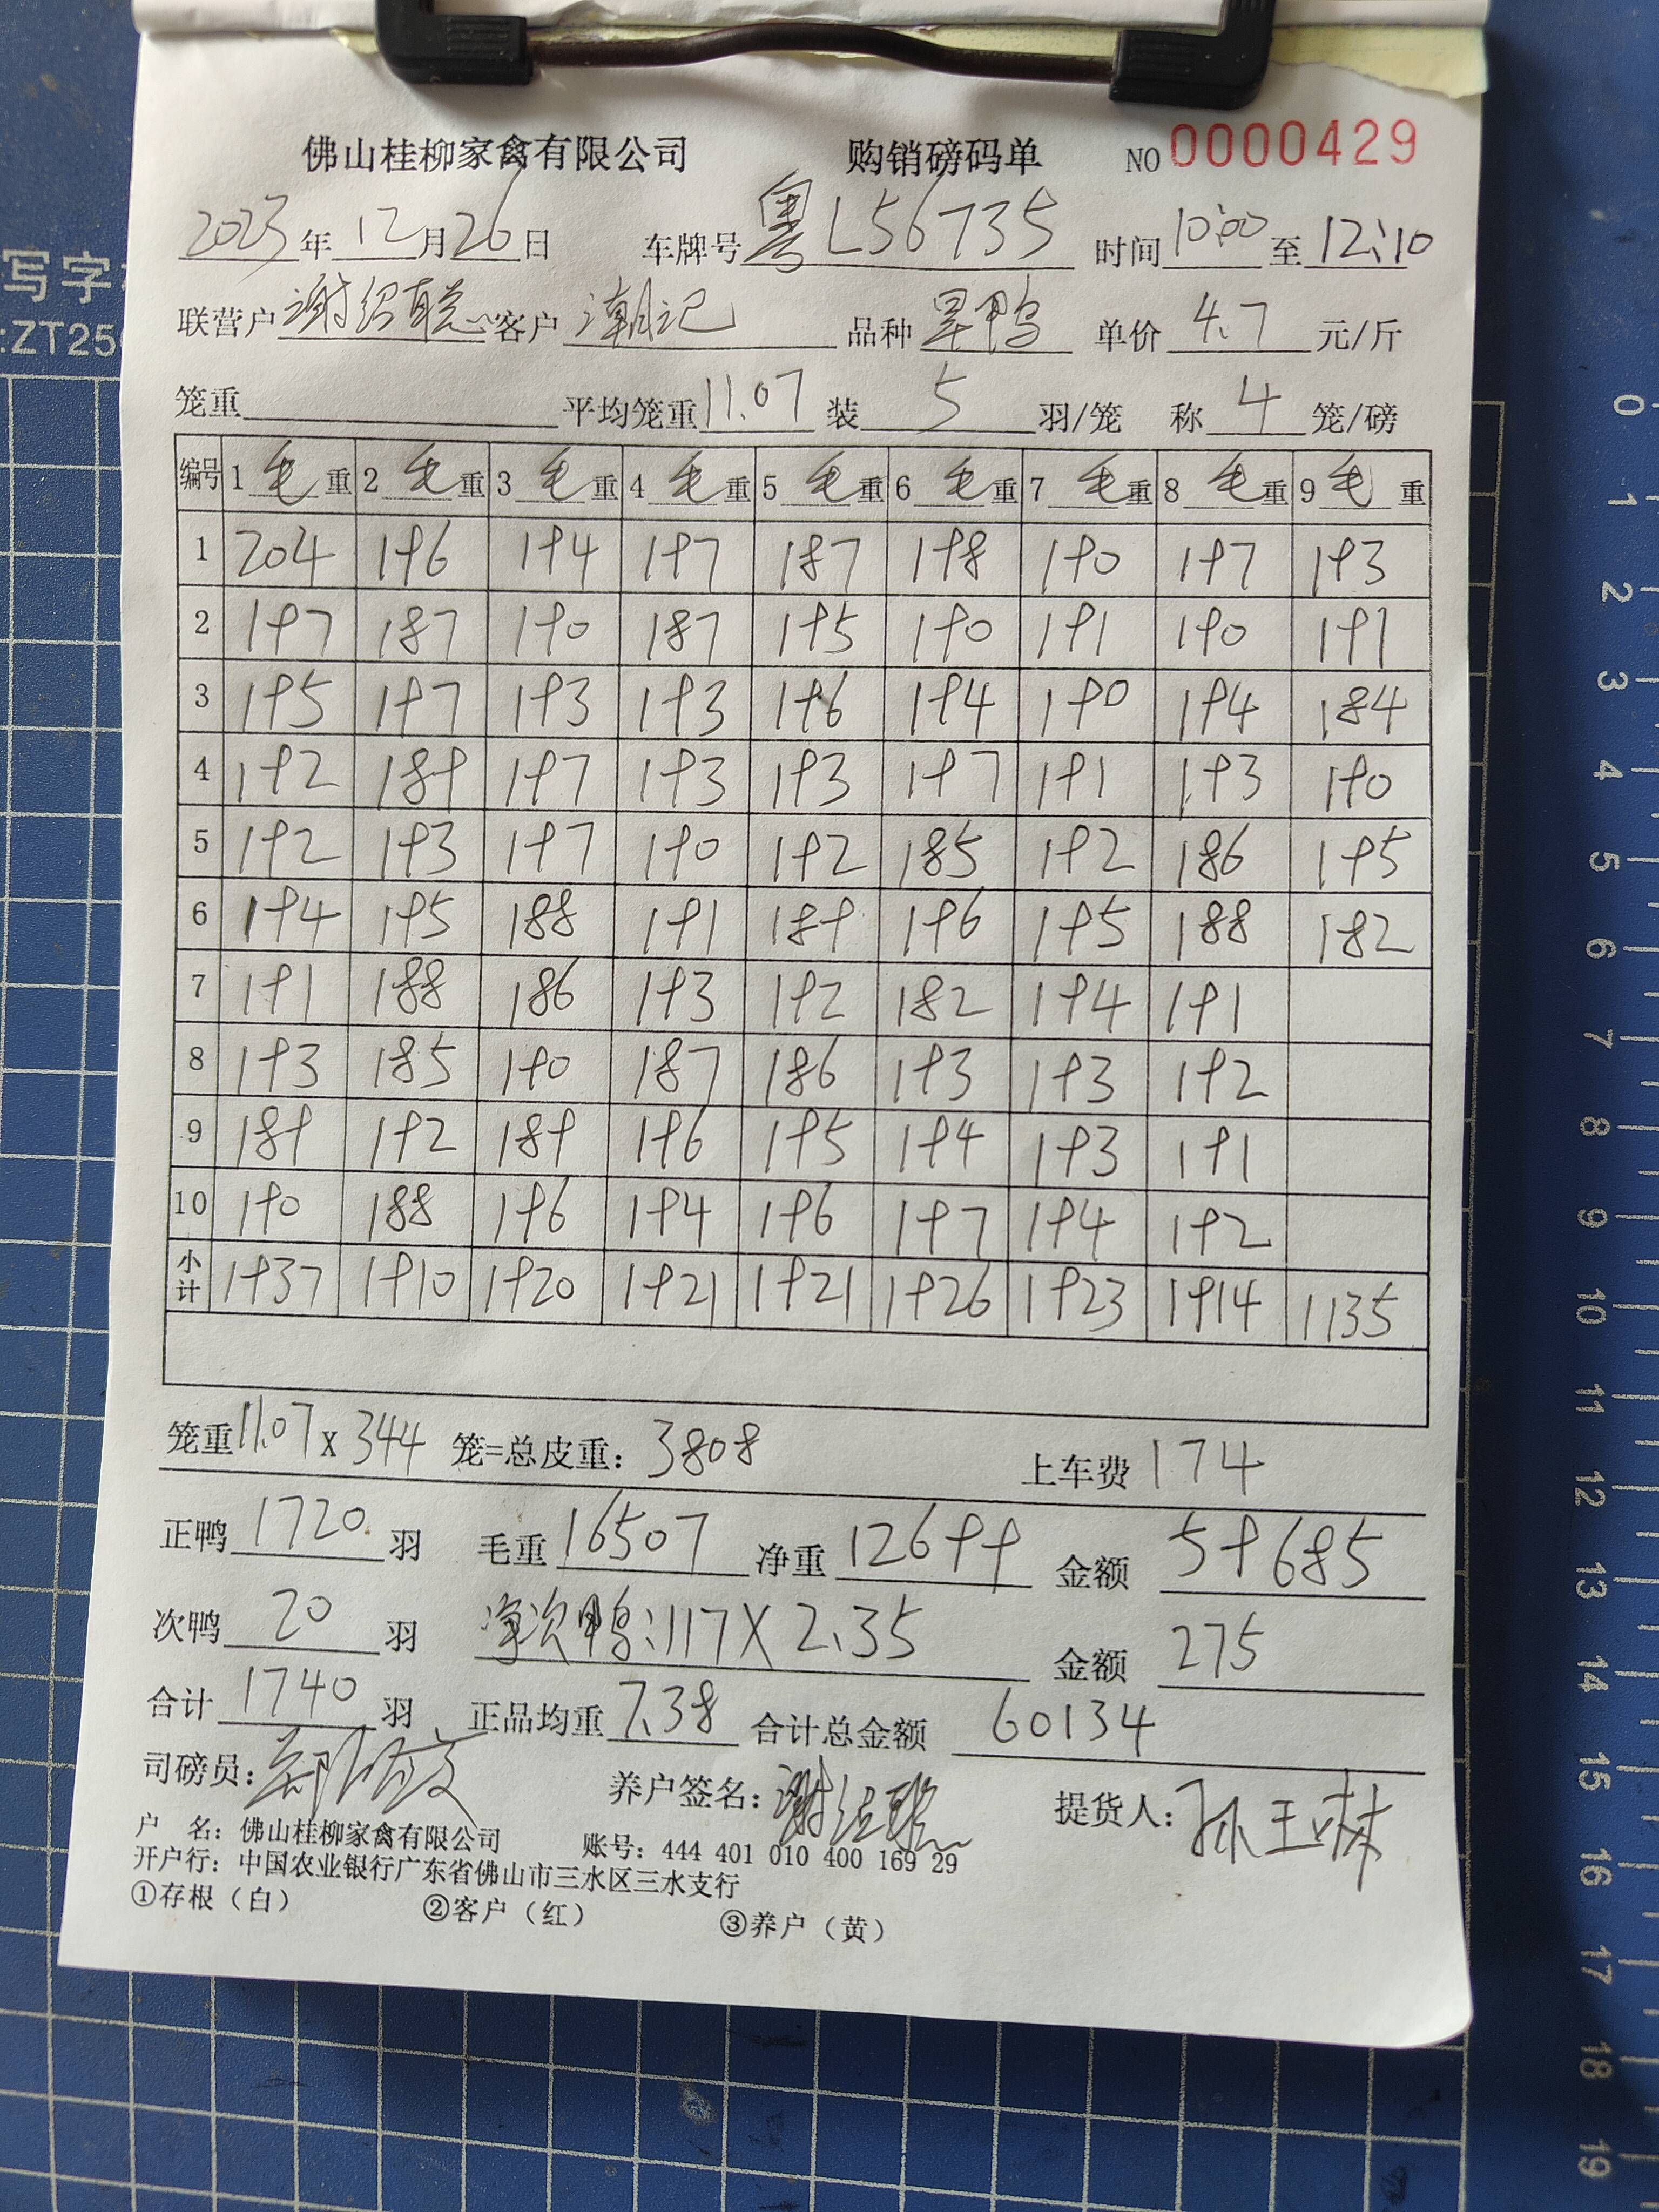 佛山桂柳家禽有限公司 购销磅码单 NO 0000429
2023年12月26日 车牌号 粤L56735 时间 10:00 至 12:10
联营户 谢绍聪 客户 潮记 品种 旱鸭 单价 4.7 元/斤
笼重 平均笼重 11.07 装 5 羽/笼 称 4 笼/磅
编号 1 毛重 2 毛重 3 毛重 4 毛重 5 毛重 6 毛重 7 毛重 8 毛重 9 毛重
1 204 196 194 197 187 198 190 197 193
2 197 187 190 187 195 190 191 190 191
3 195 197 193 193 196 194 190 194 184
4 192 189 197 193 193 197 191 193 190
5 192 193 197 190 192 185 192 186 195
6 194 195 188 191 189 196 195 188 182
7 191 188 186 193 192 182 194 191
8 193 185 190 187 186 193 193 192
9 189 192 189 196 195 194 193 191
10 190 188 196 194 196 197 194 192
小计 1937 1910 1920 1921 1921 1926 1923 1914 1135
笼重 11.07 x 344 笼=总皮重: 3808 上车费 174
正鸭 1720 羽 毛重 16507 净重 12699 金额 59685
次鸭 20 羽 净次鸭:117X2.35 金额 275
合计 1740 羽 正品均重 7.38 合计总金额 60134
司磅员: 养户签名: 提货人:
户 名: 佛山桂柳家禽有限公司 账号: 444 401 010 400 169 29
开户行: 中国农业银行广东省佛山市三水区三水支行
①存根（白） ②客户（红） ③养户（黄）
写字
:ZT25
0
1
2
3
4
5
6
7
8
9
10
11
12
13
14
15
16
17
18
19